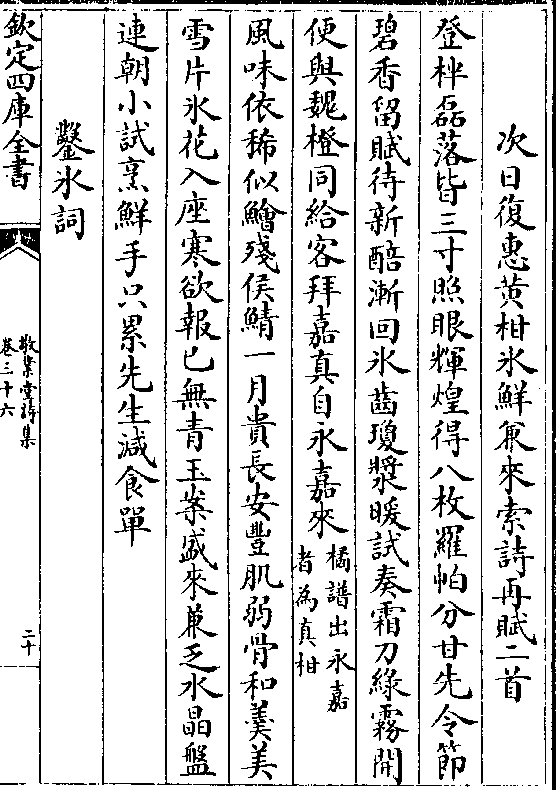 次日復惠黄柑氷鮮兼来索詩再賦二首
登柈磊落皆三寸照眼輝煌得八枚羅帕分甘先令節
碧香留賦待新醅漸回氷齒瓊漿暖試奏霜刀綠霧開
便與魏橙同給客拜嘉真自永嘉來橘譜出永嘉
者為真柑
風味依稀似鱠殘侯鯖一月貴長安豐肌弱骨和羹美
雪片氷花入座寒欲報已無青玉案盛來兼乏水晶盤
連朝小試烹鮮手只累先生減食單
鑿氷詞
欽定四庫全書
敬業堂詩集
卷三十六
二十